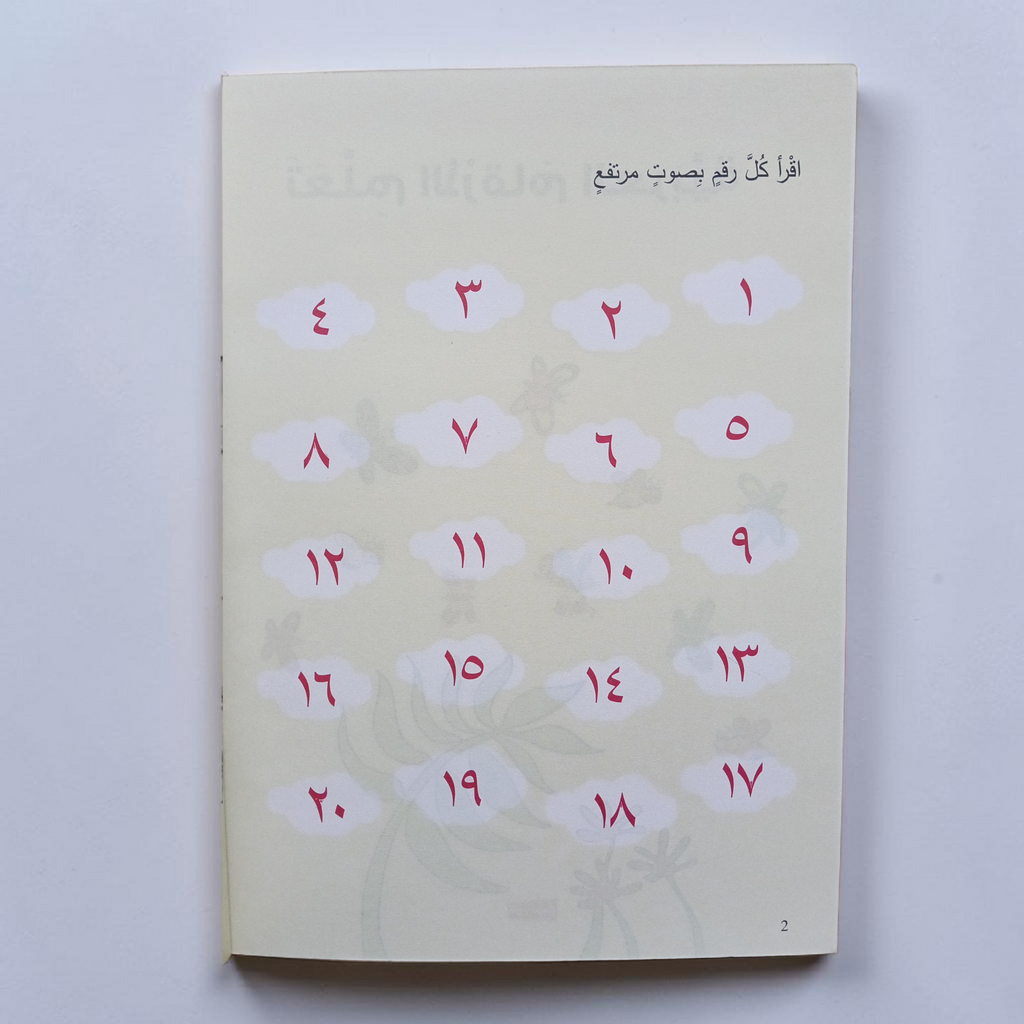 اقْرأ كُلَّ رقمٍ بِصوتٍ مرتفعٍ
١ ٢ ٣ ٤
٥ ٦ ٧ ٨
٩ ١٠ ١١ ١٢
١٣ ١٤ ١٥ ١٦
١٧ ١٨ ١٩ ٢٠
2